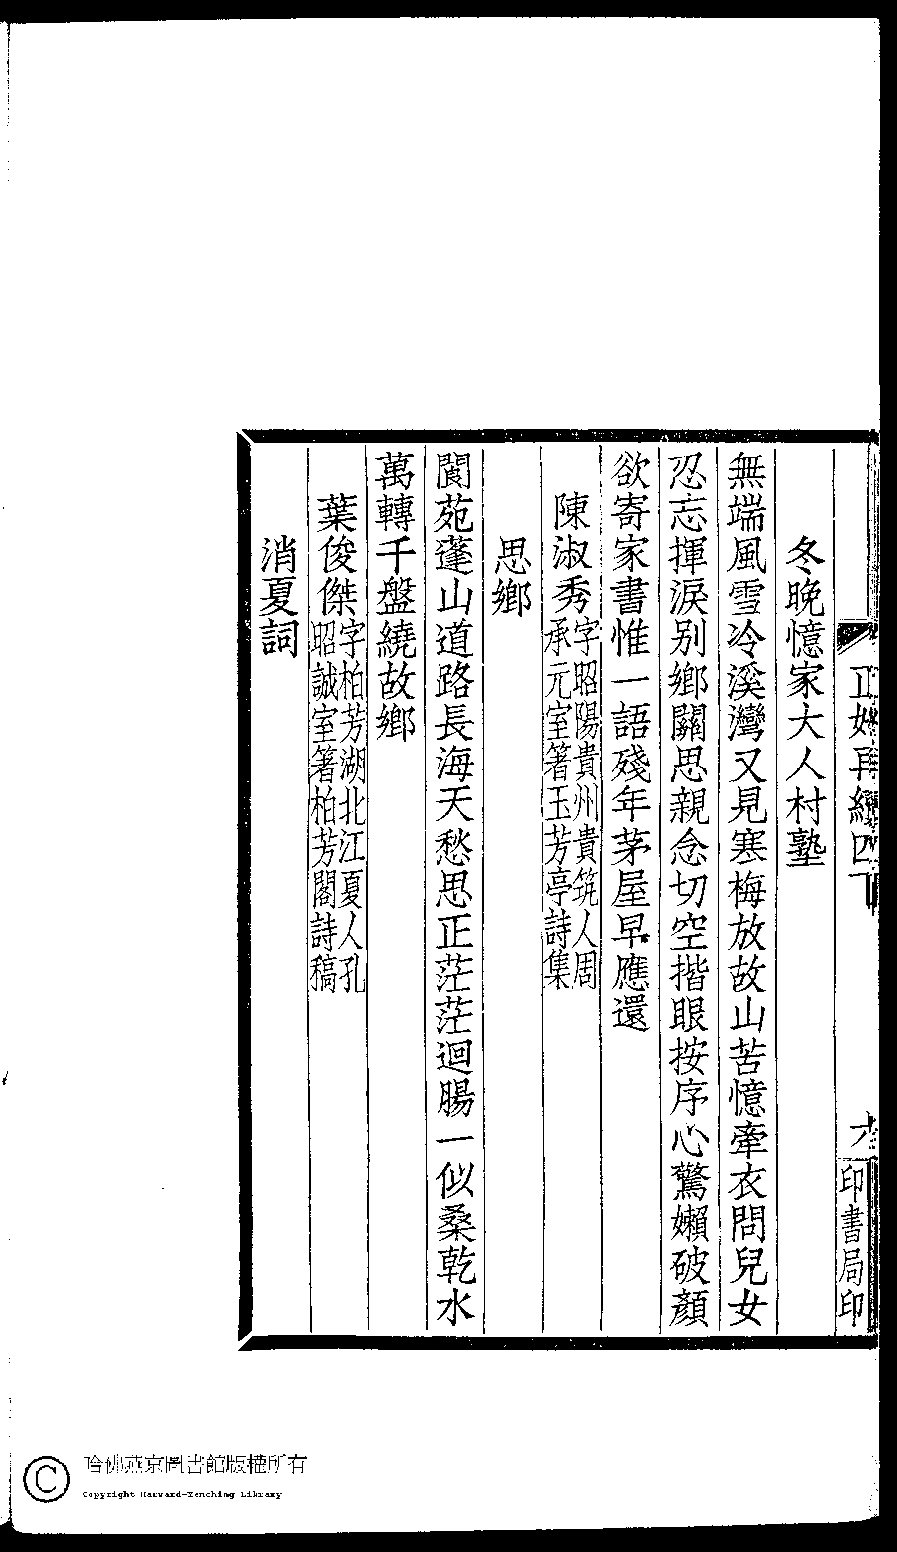 冬晚憶家大人村塾
無端風雪冷溪灣又見寒梅放故山苦憶牽衣問兒女
忍忘揮淚别鄉關思親念切空揩眼按序心驚嬾破顏
欲寄家書惟一語殘年茅屋早應還
陳淑秀字昭陽貴州貴筑人周
承元室箸玉芳亭詩集
思鄉
閬苑蓬山道路長海天愁思正茫茫迴腸一似桑乾水
萬轉千盤繞故鄉
葉俊傑字柏芳湖北江夏人孔
昭誠室箸柏芳閣詩稿
消夏詞
印書局印
哈佛燕京圖書館版權所有
Copyright Harvard-Yenching Library